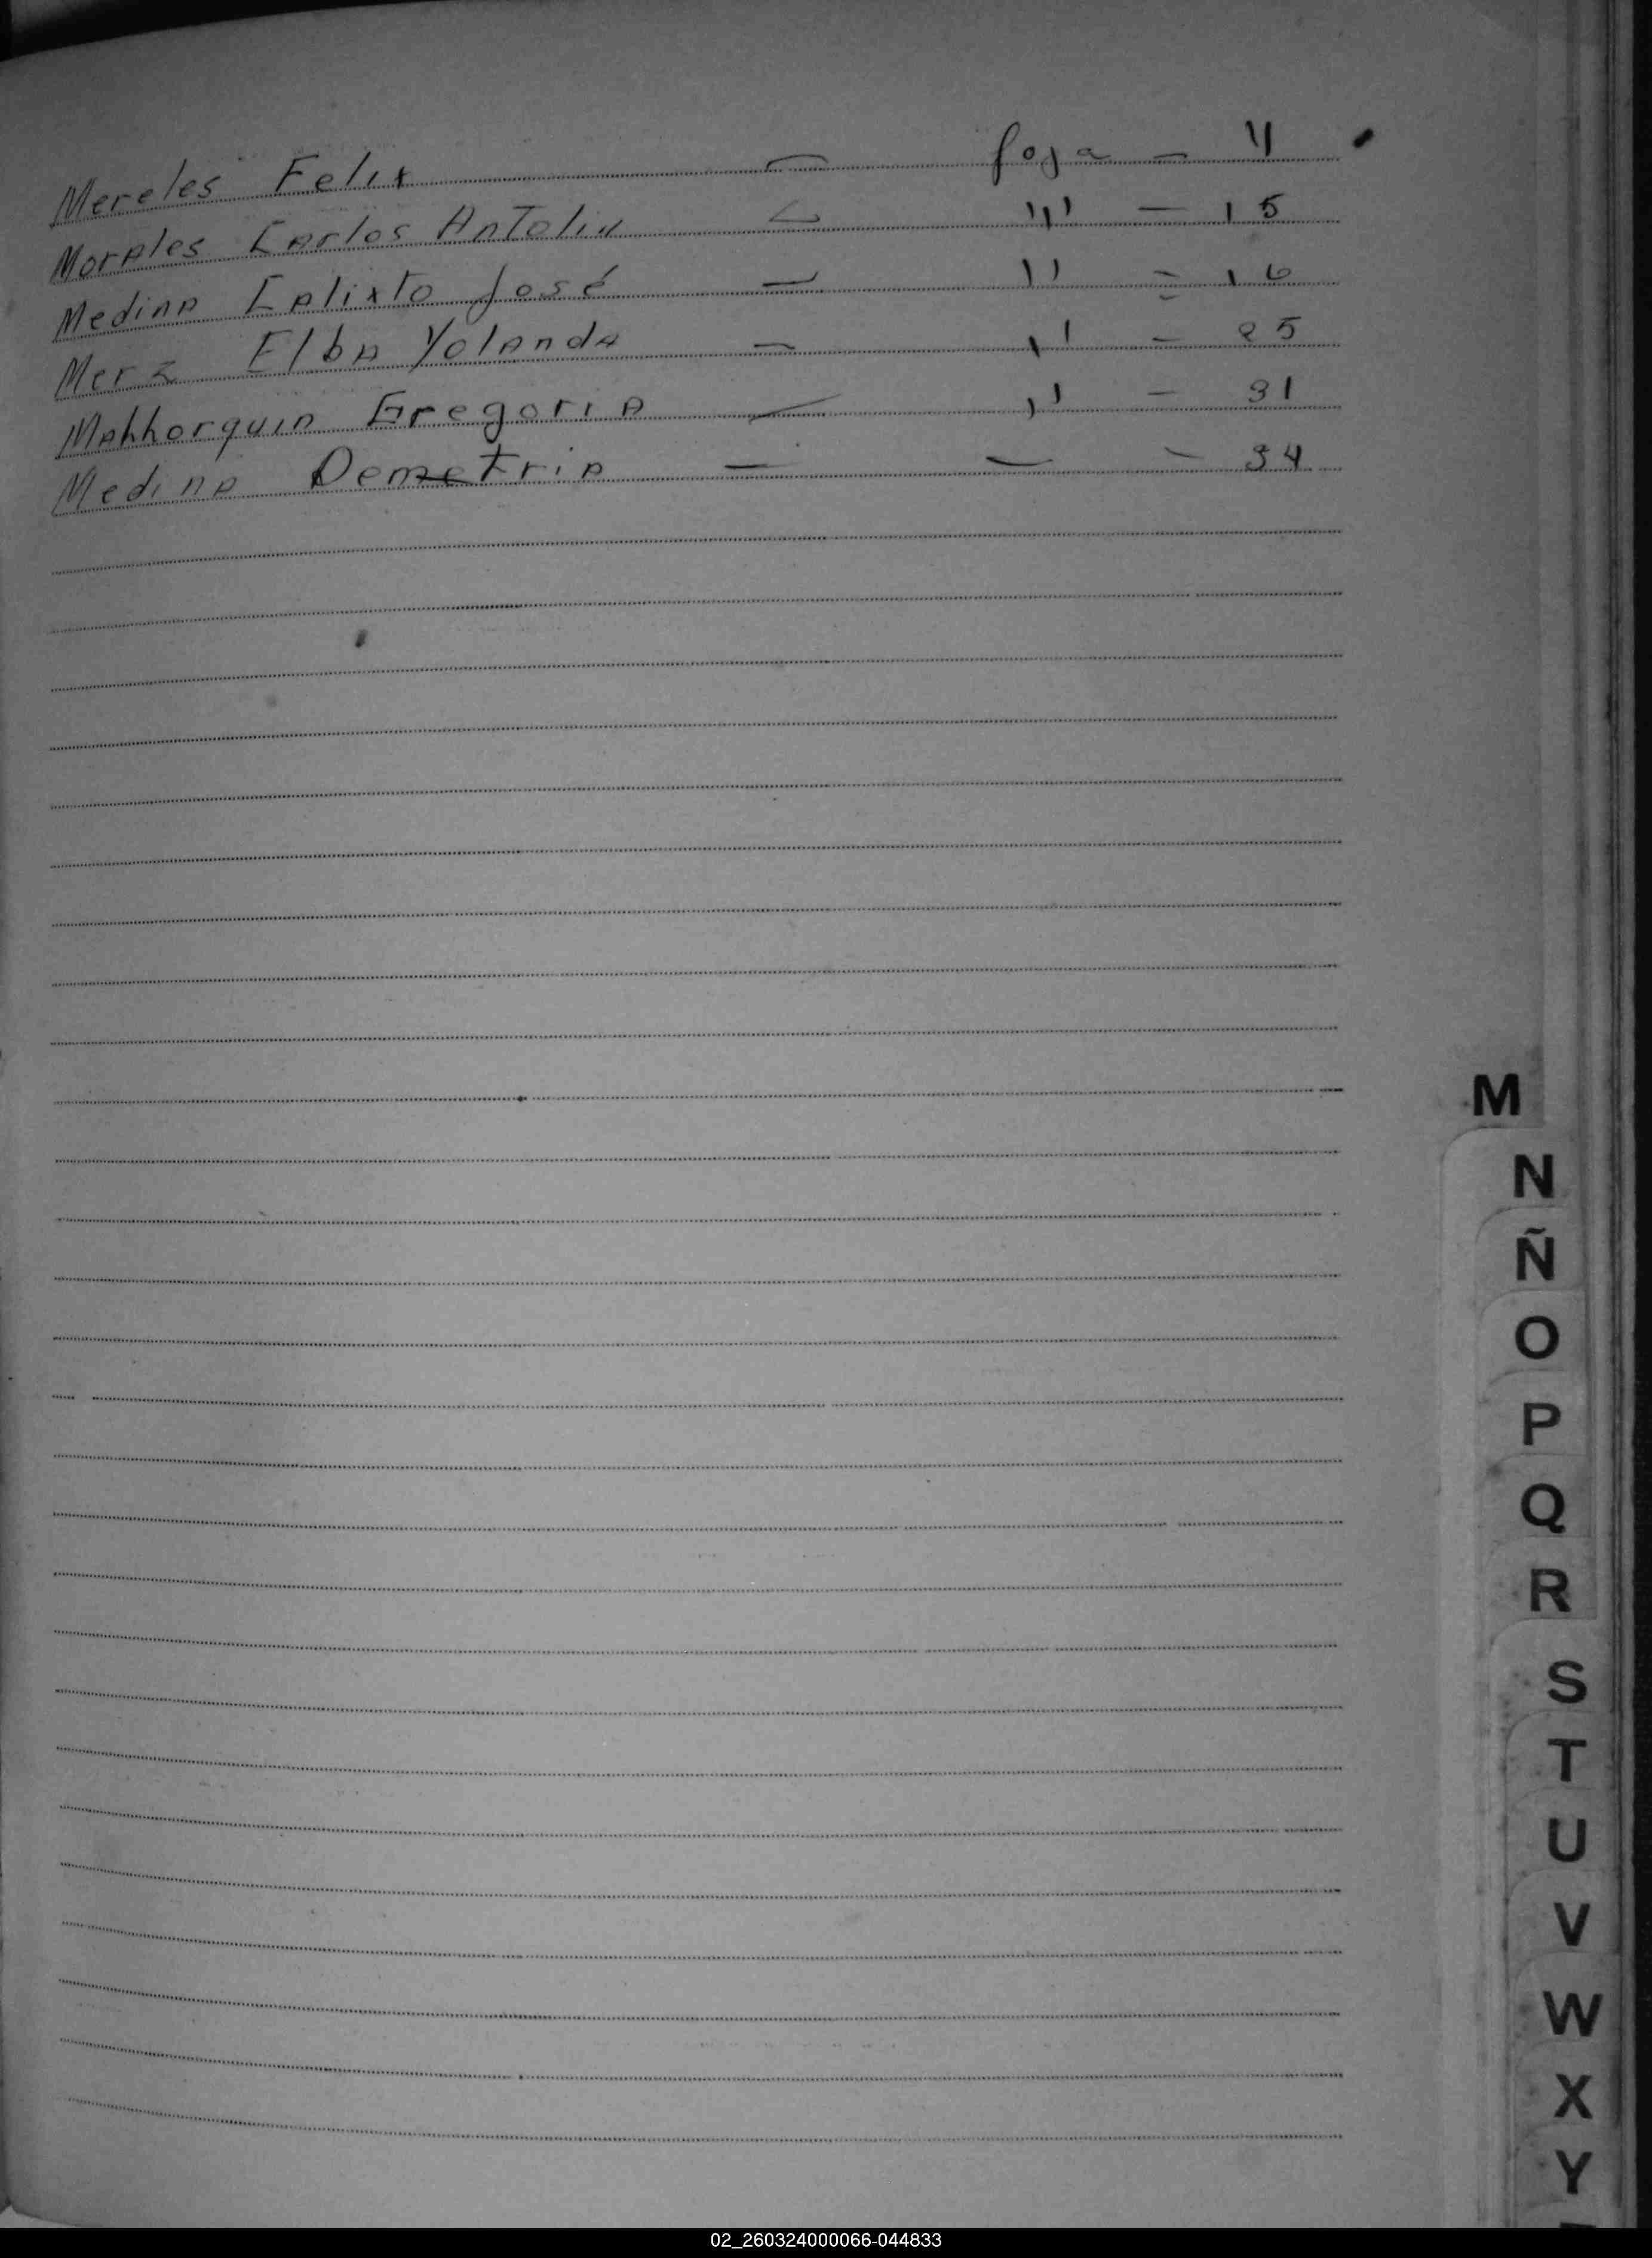 Mereles Felix — foja — 4
Morales Carlos Antolin — " — 15
Medina Calixto José — " = 16
Mera Elba Yolanda — " — 25
Mahhorquin Gregoria — " — 31
Medina Demetria — — — 34
M
N
Ñ
O
P
Q
R
S
T
U
V
W
X
Y
02_260324000066-044833